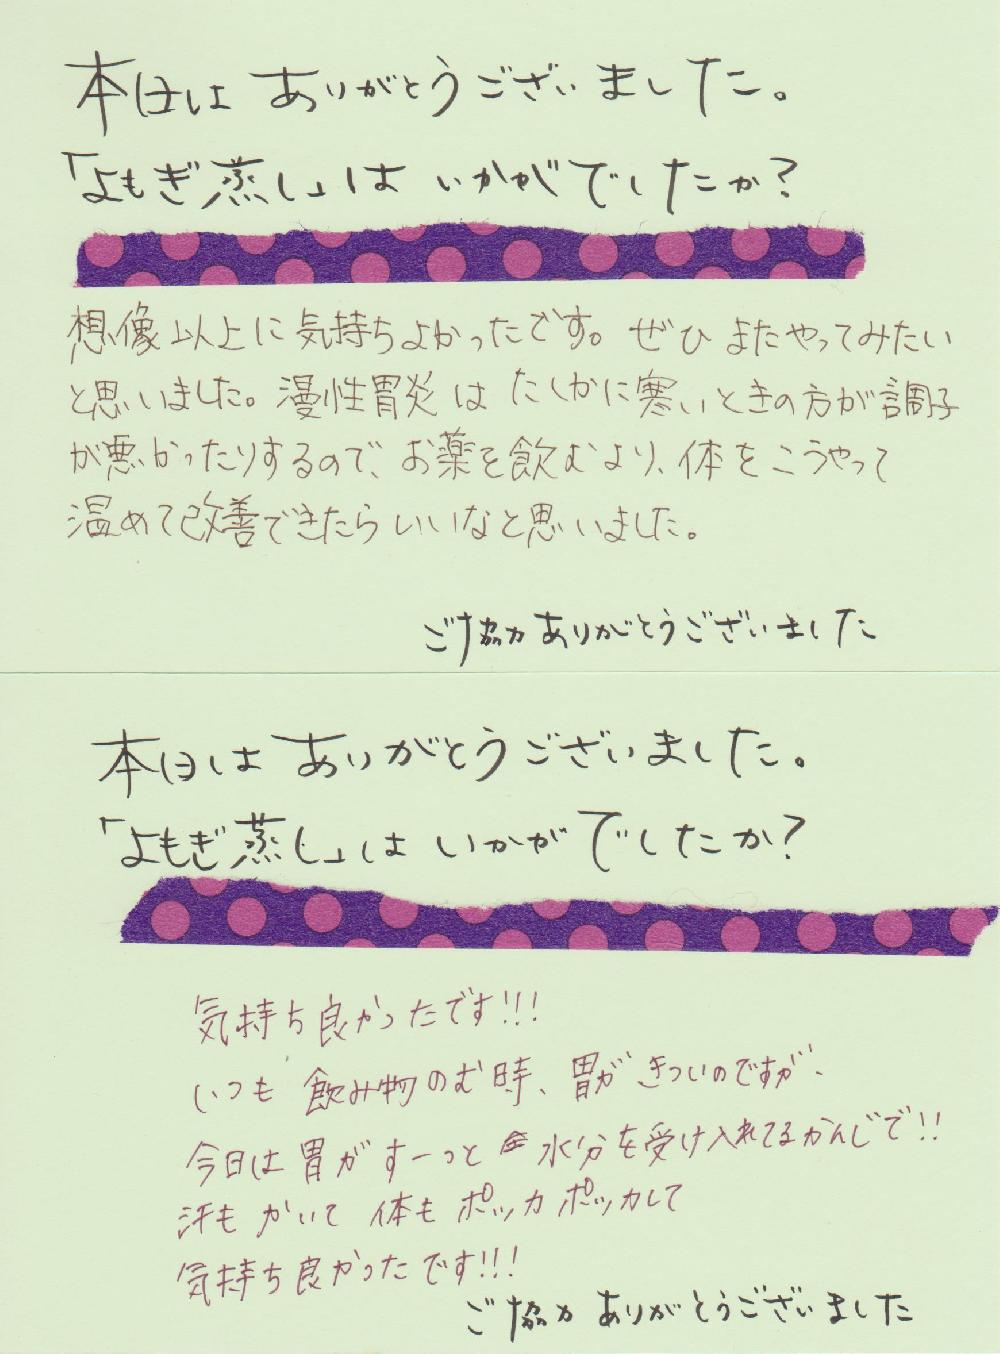 本日は ありがとうございました。
「よもぎ蒸し」は いかがでしたか?
想像以上に気持ちよかったです。ぜひ またやってみたい
と思いました。漫性胃炎は たしかに寒いときの方が調子
が悪かったりするので、お薬を飲むより、体をこうやって
温めて改善できたらいいなと思いました。
ご協力ありがとうございました
本日は ありがとうございました。
「よもぎ蒸し」は いかがでしたか?
気持ち良かったです!!!
いつも 飲み物のむ時、胃が きついのですが、
今日は 胃が すーっと 水分を受け入れてるかんじで!!
汗も かいて 体も ポッカポッカして
気持ち良かったです!!!
ご協力 ありがとうございました